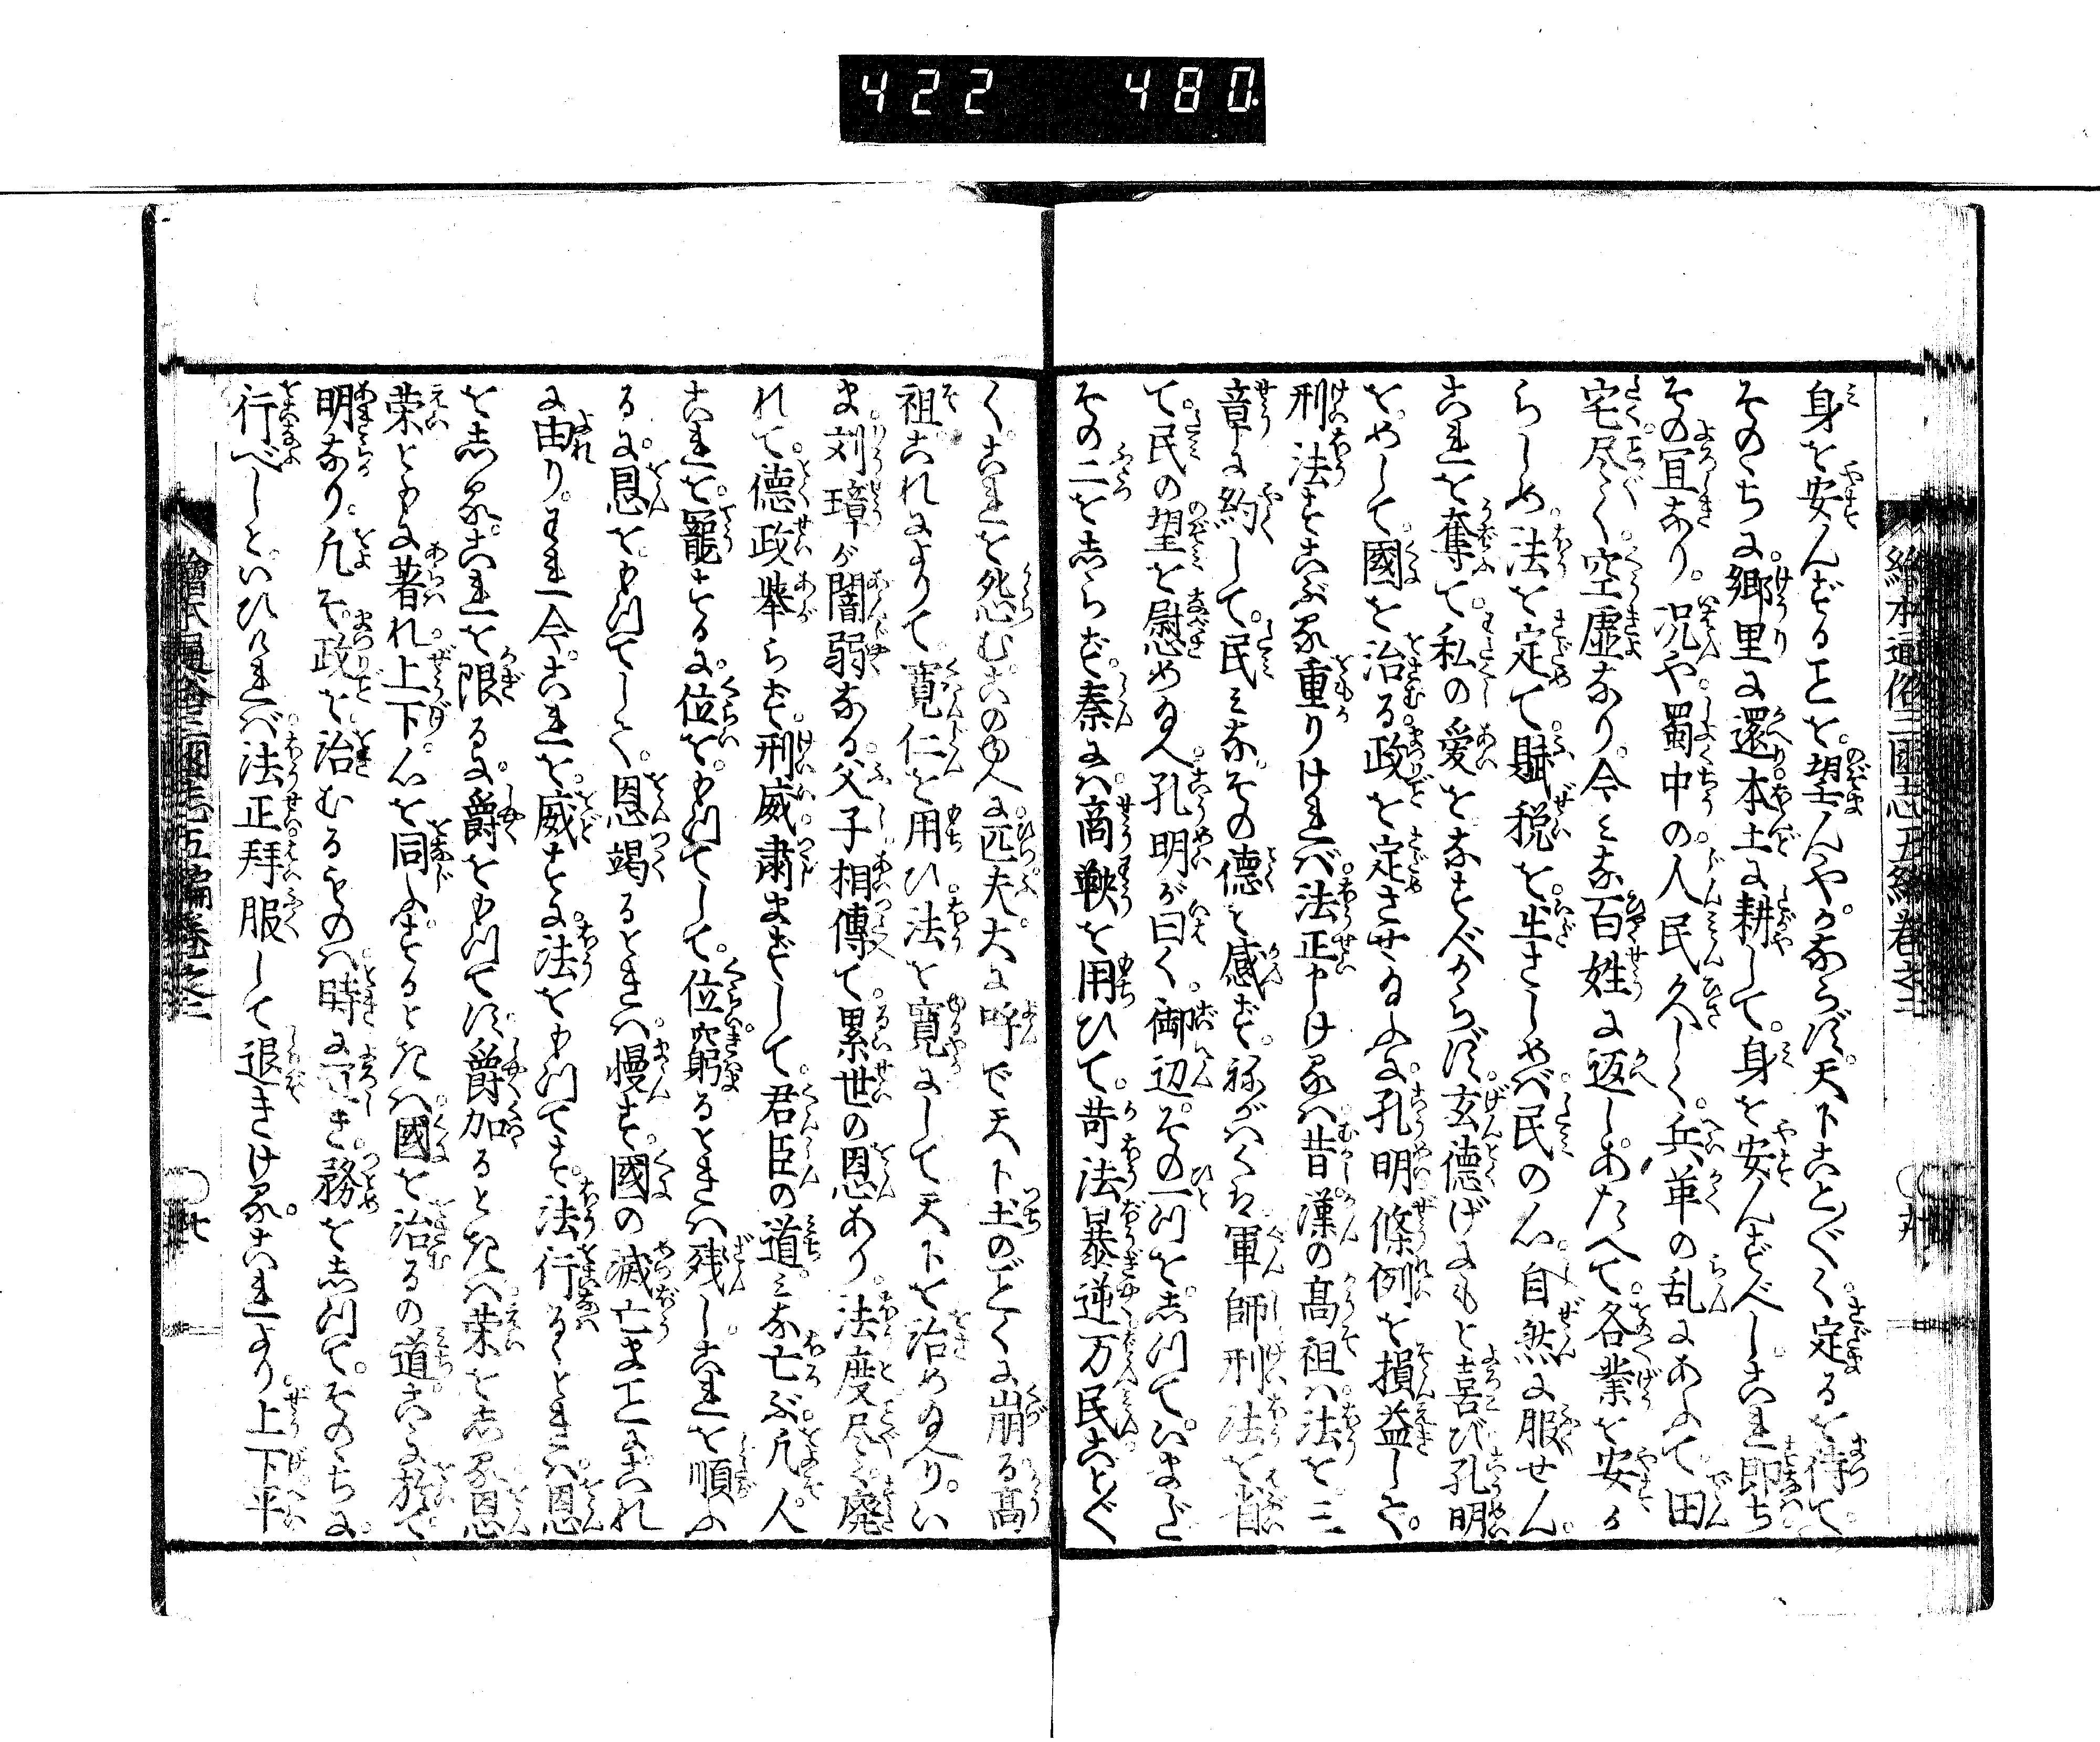 422 480
繪本通俗三國志五編卷之二
身を安んずることを望んや。かならず天下こと〴〵く定るを待て。
そのゝちに郷里に還。本土に耕して。身を安んずべし。これ即ち
その宜なり。况や蜀中の人民久しく。兵革の乱にあふて。田
宅尽く。空虚なり。今みな百姓に返しあたへて。各業を安か
らしめ。法を定て。賦税を生さしめば民の心自然に服せん。
これを奪て。私の愛をなすべからず。玄徳げにもと喜び孔明
をめして。國を治る政を定させ給ふに。孔明條例を損益して。
刑法すこぶる重りければ。法正申ける。は昔漢の髙祖は。法を三
章に約して。民みなその徳を感ず。祢がはくは軍師刑法を省
て。民の望を慰め給へ。孔明が曰く。御辺。その一つをしつていまだ
その二をしらず。秦には商鞅を用ひて。苛法暴逆万民こと〴〵
く。これを怨む。このゆへに匹夫大に呼で天下土のごとくに崩る髙
祖これによりて。寛仁を用ひ法を寛にして天下を治め給へり。い
ま刘璋が闇弱なる父子相傳て累世の恩あり。法度尽く廃
れて。徳政挙らず。刑威粛まずして。君臣の道みな亡ぶ。凡人
これを寵するに。位をもつてして。位窮るときは残し。これを順ふ
るに恩をもつてして。恩竭るときは慢す。國の滅亡まことにこれ
に由り。われ今これを威すに法をもつてす。法行るゝときは恩
をしる。これを限るに爵をもつてす。爵加るときは栄をしる。恩
栄ともに著れ。上下心を同ふするときは。國を治るの道こゝに於て
明なり。凡そ政を治むるものは時に宜き務をしつて。そのゝちに
行べしといひければ法正拜服して退きける。これより。上下平
繪本通俗三國志五編卷之二
廿